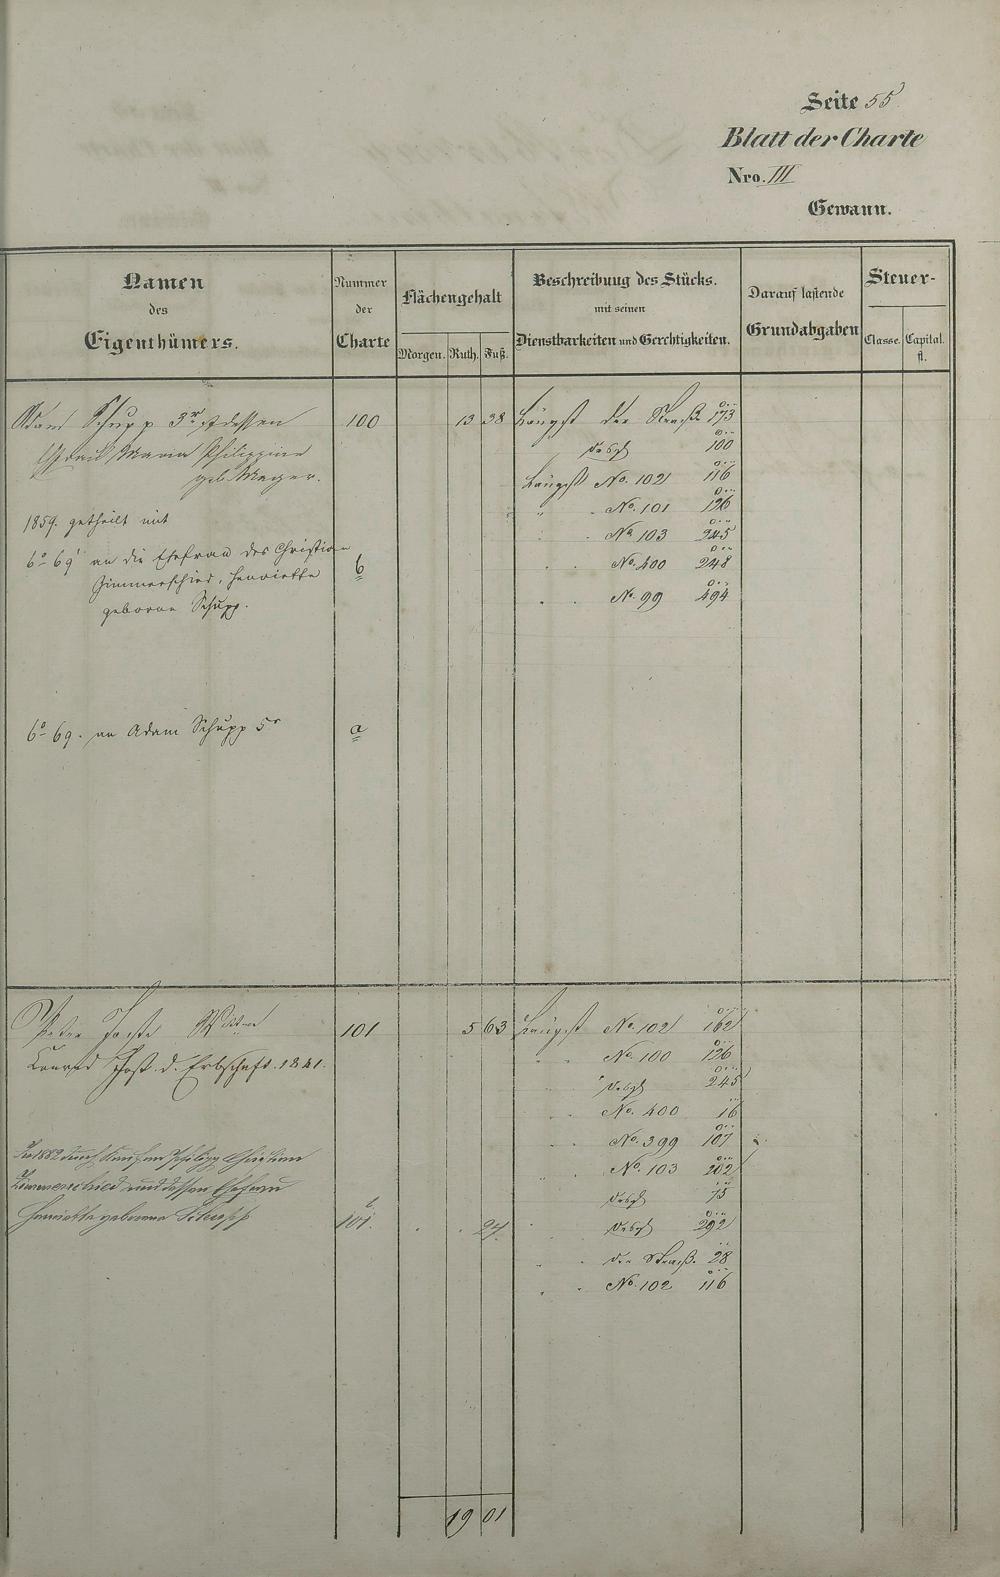 Seite 55
Blatt der Charte
Nro. III
Gewann.
Namen
des
Eigenthümers.
Nummer
der
Charte
Flächengehalt
Morgen. Ruth. Fuß.
Beschreibung des Stücks.
mit seinen
Dienstbarkeiten und Gerchtigkeiten.
Darauf lastende
Grundabgaben
Steuer-
Classe. Capital.
fl.
Adam Schupp 3r u dessen 100 13 38 Längst der Straß. 173
Ehfrau Maria Philippine desgl 100
geb. Mayer. Längst No. 102 116
1859. getheilt mit " No. 101 126
No. 103 245
6° 69' an die Ehefrau des Christian b No. 400 248
Zimmerschied, Henriette
geborne Schupp. No. 99 494
6° 69. an Adam Schupp 5r a
Peter Wittwe 101 5 63 Längst No. 102 162
Conrad d. Erbschaft. 1841. No. 100 126
desgl 245
No. 400 16
No. 399 107
1882 durch Kauf an Philipp Christian No. 103 202
Zimmerschied und dessen Ehefrau desgl 75
Henriette geborene Schupp 101 b. 24 desgl 292
der Straß. 28
No. 102 116
19 01